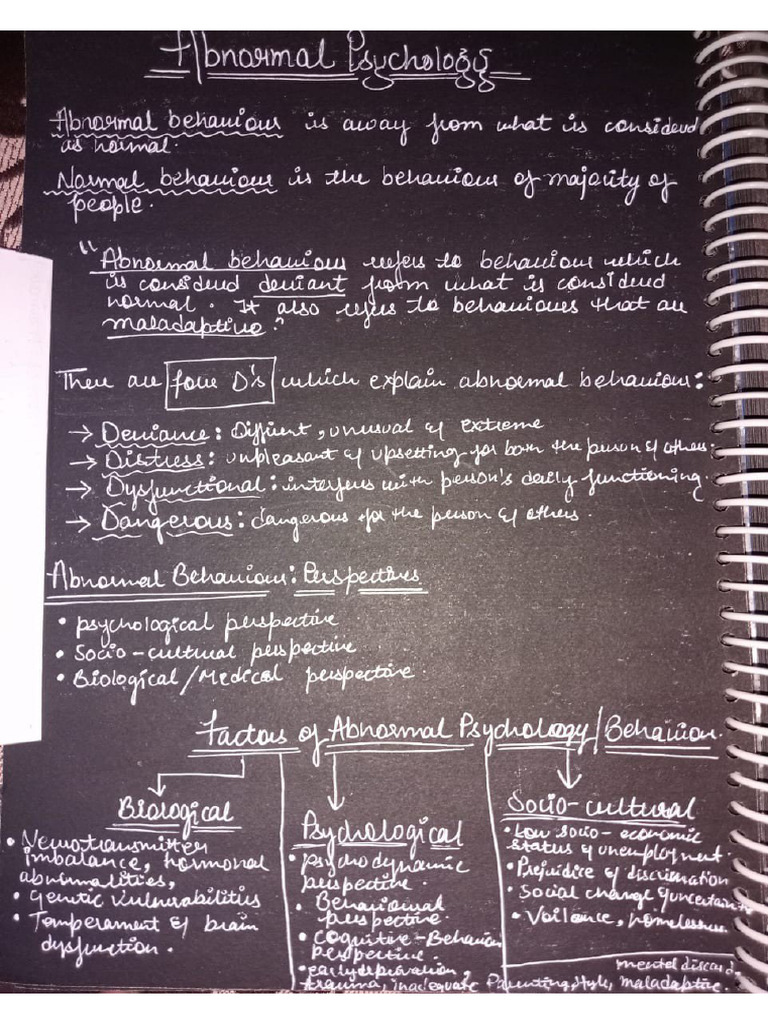 Abnormal Psychology
Abnormal behaviour is away from what is considerd
as normal.
Normal behaviour is the behaviour of majority of
people.
"Abnormal behaviour refers to behaviour which
is considerd deviant from what is considerd
normal. It also refers to behaviours that are
maladaptive."
There are four D's which explain abnormal behaviour:
→ Deviance: Different, unusual & extreme
→ Distress: unpleasant & upsetting for both the person & others.
→ Dysfunctional: interferes with person's daily functioning.
→ Dangerous: dangerous for the person & others.
Abnormal Behaviour: Perspectives
• psychological perspective
• Socio-cultural perspective
• Biological/Medical perspective.
Factors of Abnormal Psychology/Behaviour.
Biological
• Neurotransmitter
imbalance, hormonal
abnormalities,
• Genetic vulnerabilities
• Temperament & brain
dysfunction.
Psychological
• psychodynamic
perspective.
• Behavioural
perspective.
• Cognitive-Behaviour
perspective.
• early deprivation,
trauma, inadequate Parenting, style, maladaptive.
Socio-cultural
• Low socio-economic
status & unemployment.
• Prejudice & discrimation
• Social change & uncertain
• Voilance, homelessness.
mental